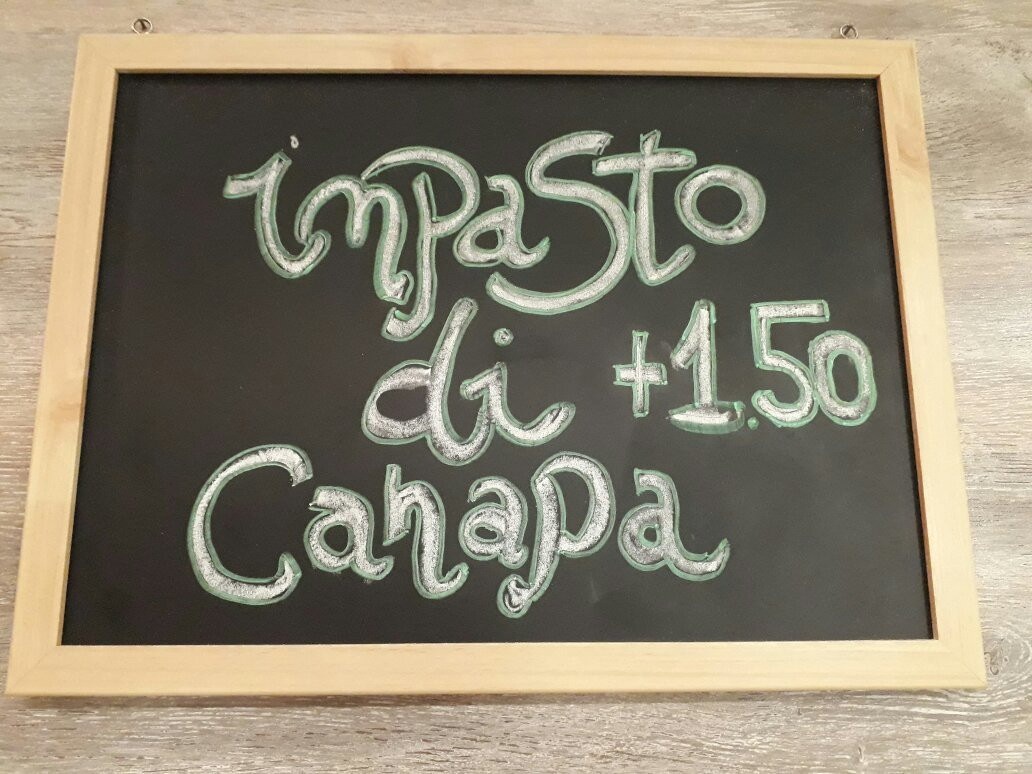 inpasto
di +1.50
Canapa